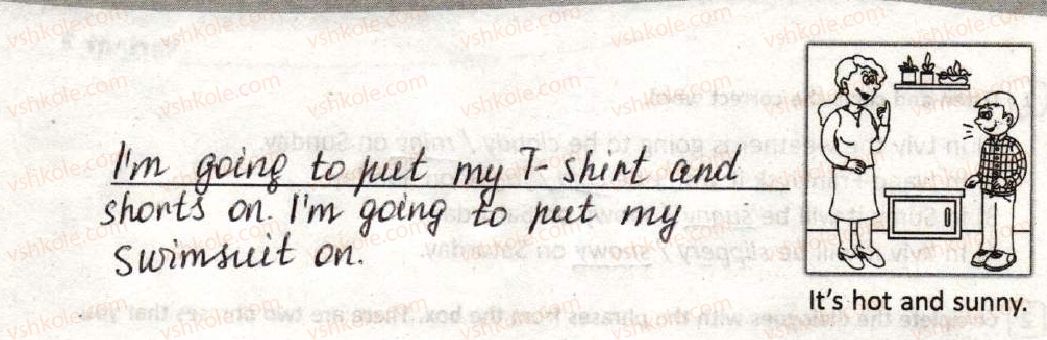 I'm going to put my T-shirt and
shorts on. I'm going to put my
swimsuit on.
It's hot and sunny.
vshkole.com